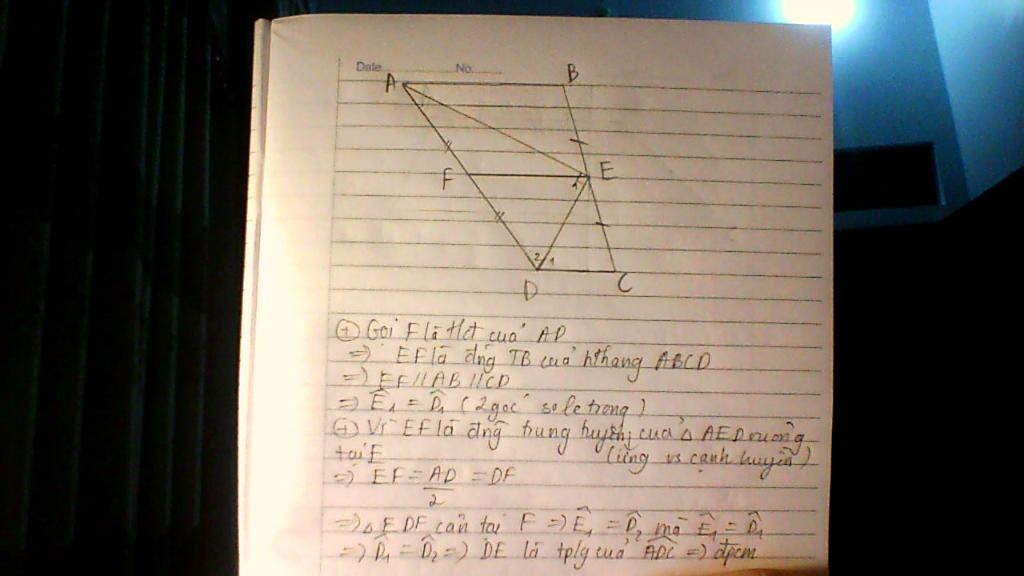 Date No.
A B
F E
1
2 1
D C
+ Gọi F là tđ của AD
=> EF là đng TB của hthang ABCD
=> EF // AB // CD
=> Ê1 = D̂1 (2 góc so le trong)
+ Vì EF là đng trung tuyến của △ AED vuông
tại E (ứng vs cạnh huyền)
=> EF = AD/2 = DF
=> △ EDF cân tại F => Ê1 = D̂2 mà Ê1 = D̂1
=> D̂1 = D̂2 => DE là tplg của ADC => đpcm